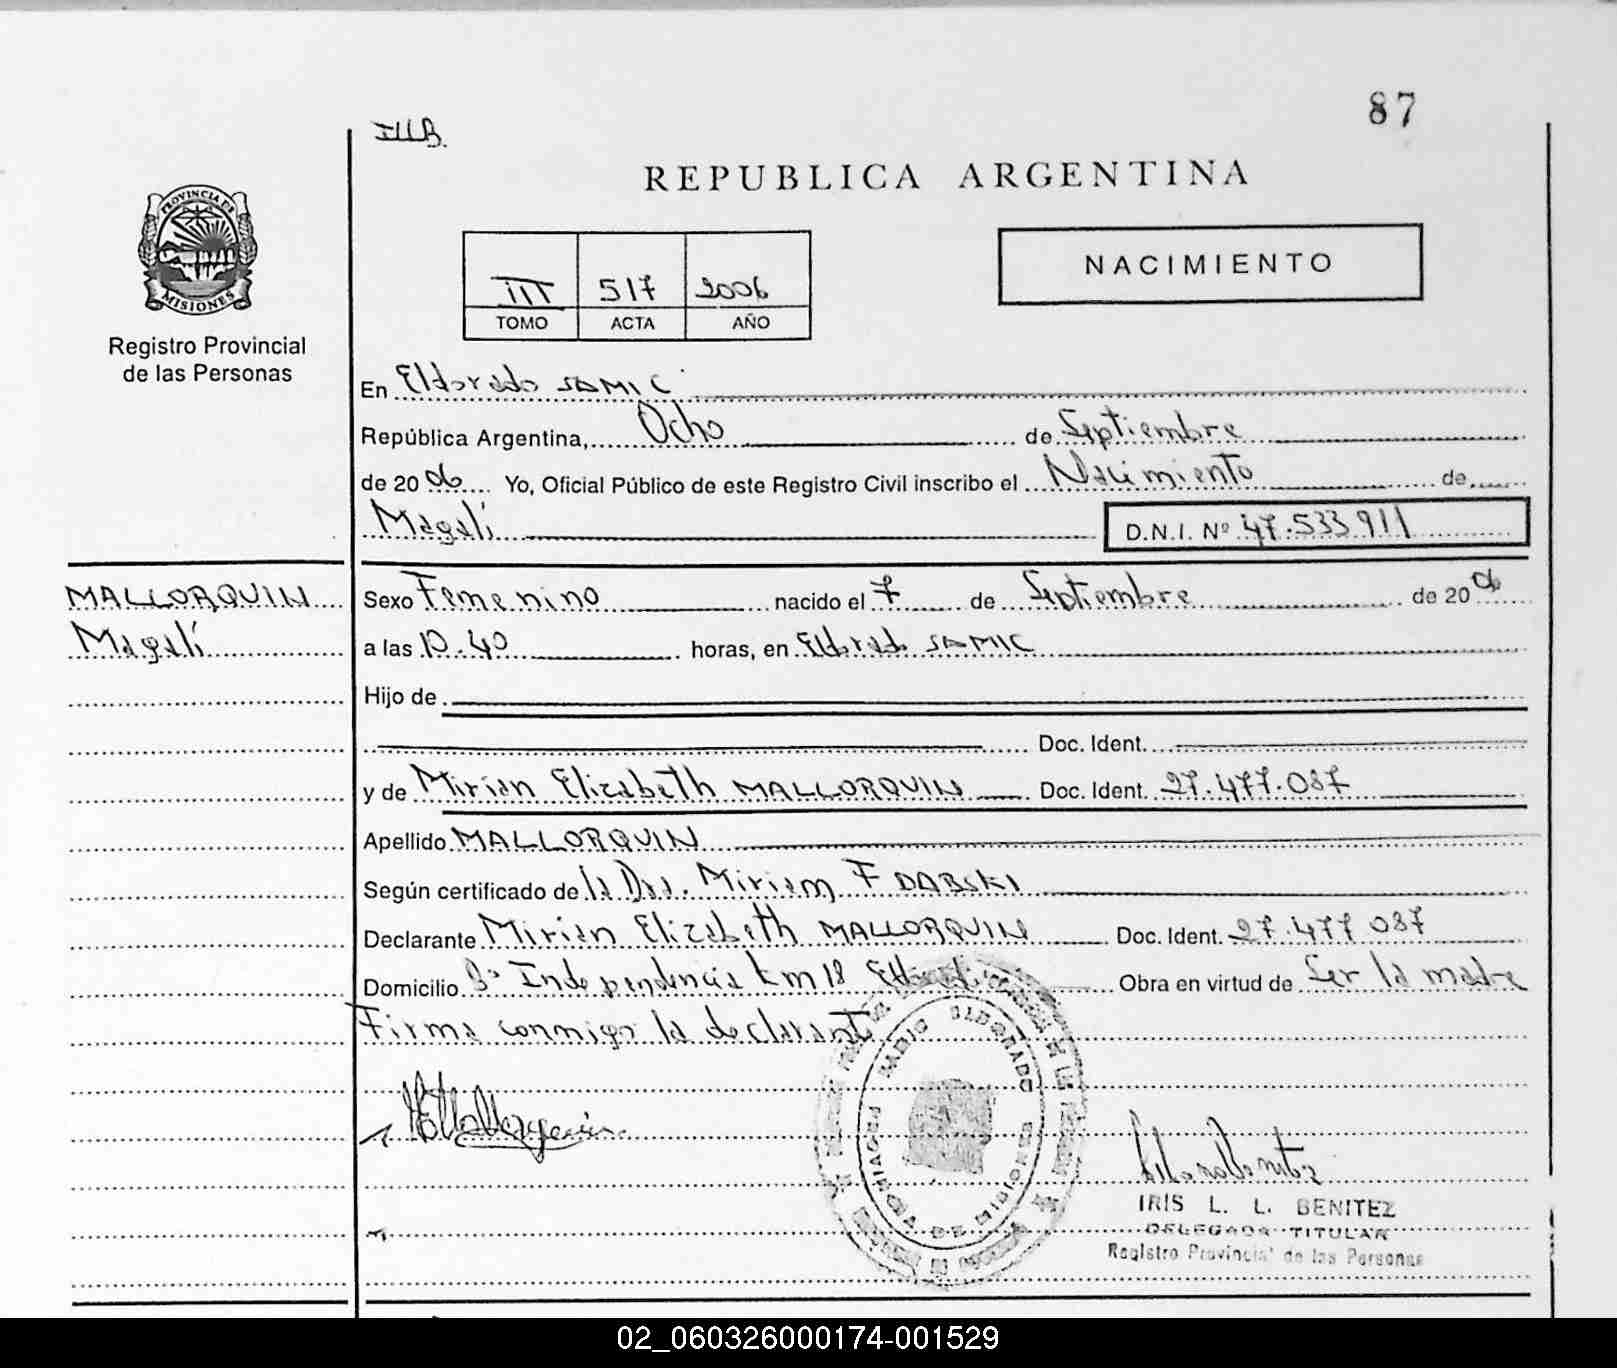 87
IIIB.
REPUBLICA ARGENTINA
PROVINCIA DE
MISIONES
Registro Provincial
de las Personas
III 517 2006
TOMO ACTA AÑO
NACIMIENTO
En Eldorado SAMIC
República Argentina, Ocho de Septiembre
de 2006 Yo, Oficial Público de este Registro Civil inscribo el Nacimiento de
Magalí D.N.I. Nº 47.533911
MALLORQUIN
Magalí
Sexo Femenino nacido el 7 de Septiembre de 2006
a las 10.40 horas, en Eldorado SAMIC
Hijo de
Doc. Ident.
y de Mirian Elizabeth MALLORQUIN Doc. Ident. 27.477.087
Apellido MALLORQUIN
Según certificado de la Dra. Miriam F DABSKI
Declarante Mirian Elizabeth MALLORQUIN Doc. Ident. 27.477 087
Domicilio Independencia km 18 Eldorado Obra en virtud de Ser la madre
Firma conmigo la declarante
RADIO ELDORADO
PROVINCIA DE MISIONES
IRIS L. L. BENITEZ
DELEGADA TITULAR
Registro Provincial de las Personas
02_060326000174-001529